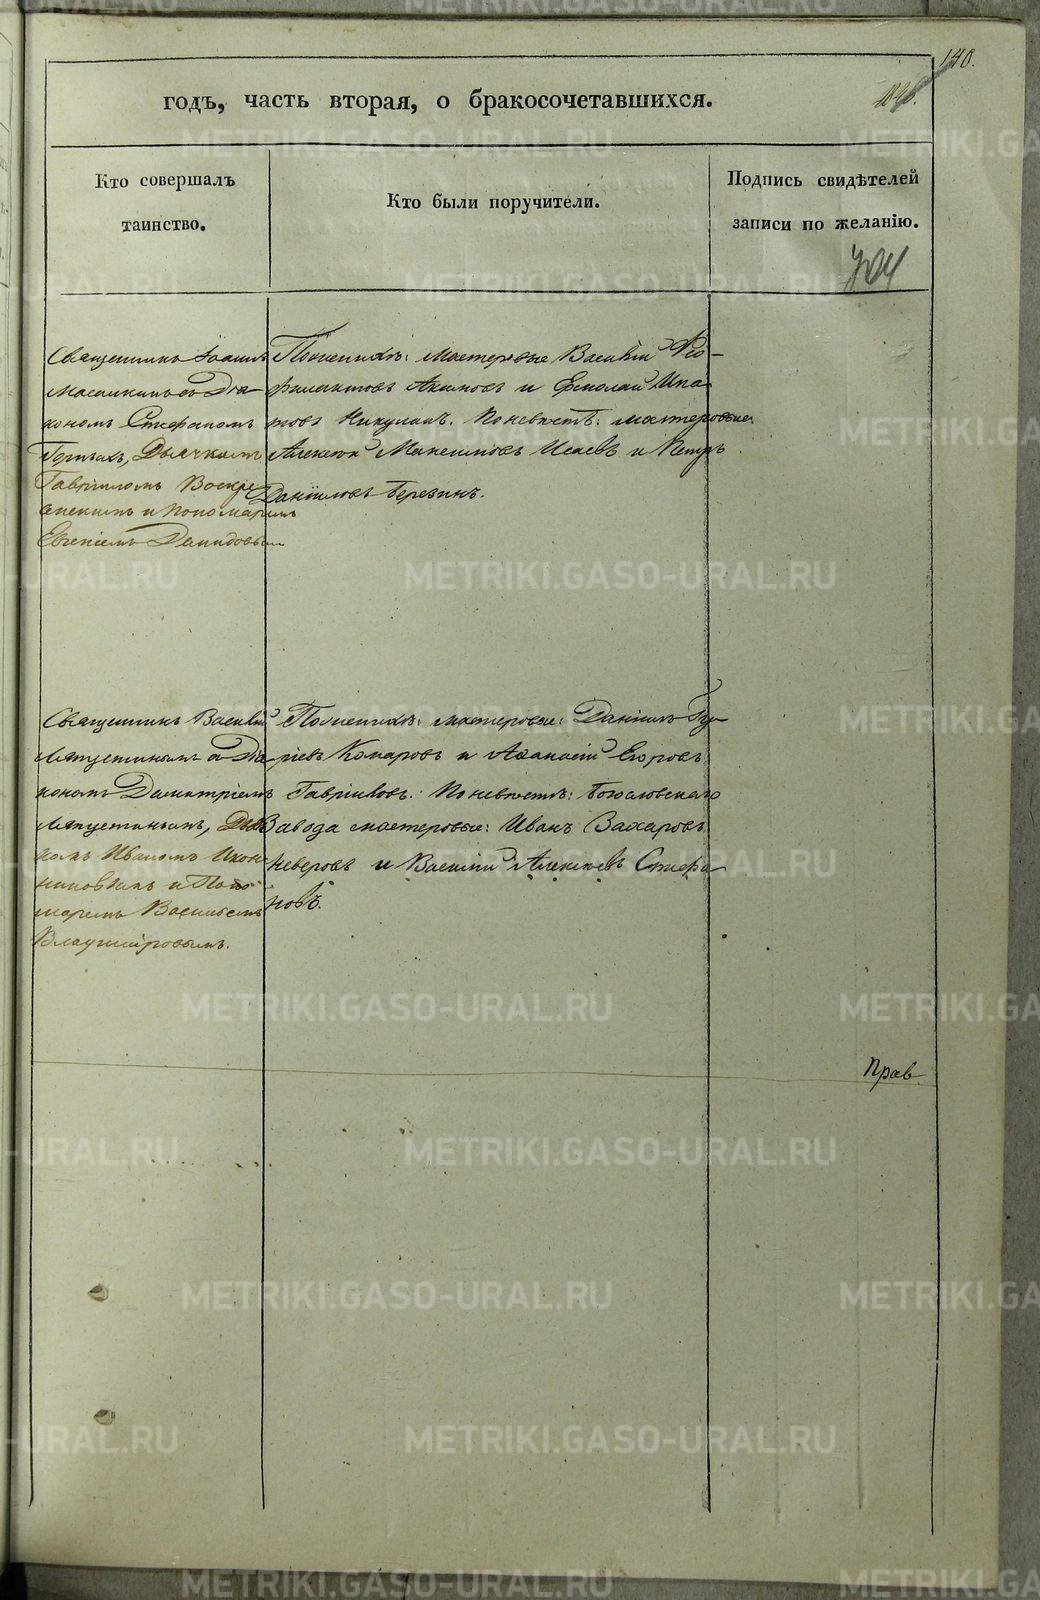 140.
годъ, часть вторая, о бракосочетавшихся.
Кто совершалъ
таинство.
Кто были поручители.
Подпись свидѣтелей
записи по желанію.
Священникъ Іоаннъ
съ Діа-
кономъ Стефаномъ
Дьячкомъ
Гавріиломъ Воскре-
сенскимъ и пономаремъ
Евгеніемъ Демидовымъ
По женихѣ: мастеровые Василій Фео-
филактовъ Акимовъ и Ермолай Ипа-
товъ Никулинъ. По невѣстѣ: мастеровые
Алексѣй Максимовъ Исаевъ и Петръ
Даніиловъ Березинъ.
Священникъ Василій
Ляпустинымъ съ Діа-
кономъ Димитріемъ
Ляпустинымъ, Дьяч-
комъ Иваномъ Икон-
никовымъ и Поно-
маремъ Васильемъ
Владиміровымъ.
По женихѣ: мастеровые: Даніилъ Гу-
ріевъ Комаровъ и Афанасій Егоровъ
Гавриловъ. По невѣстѣ: Богословскаго
Завода мастеровые: Иванъ Захаровъ
Неверовъ и Василій Алексѣевъ Стефа-
новъ.
Прав.
METRIKI.GASO-URAL.RU